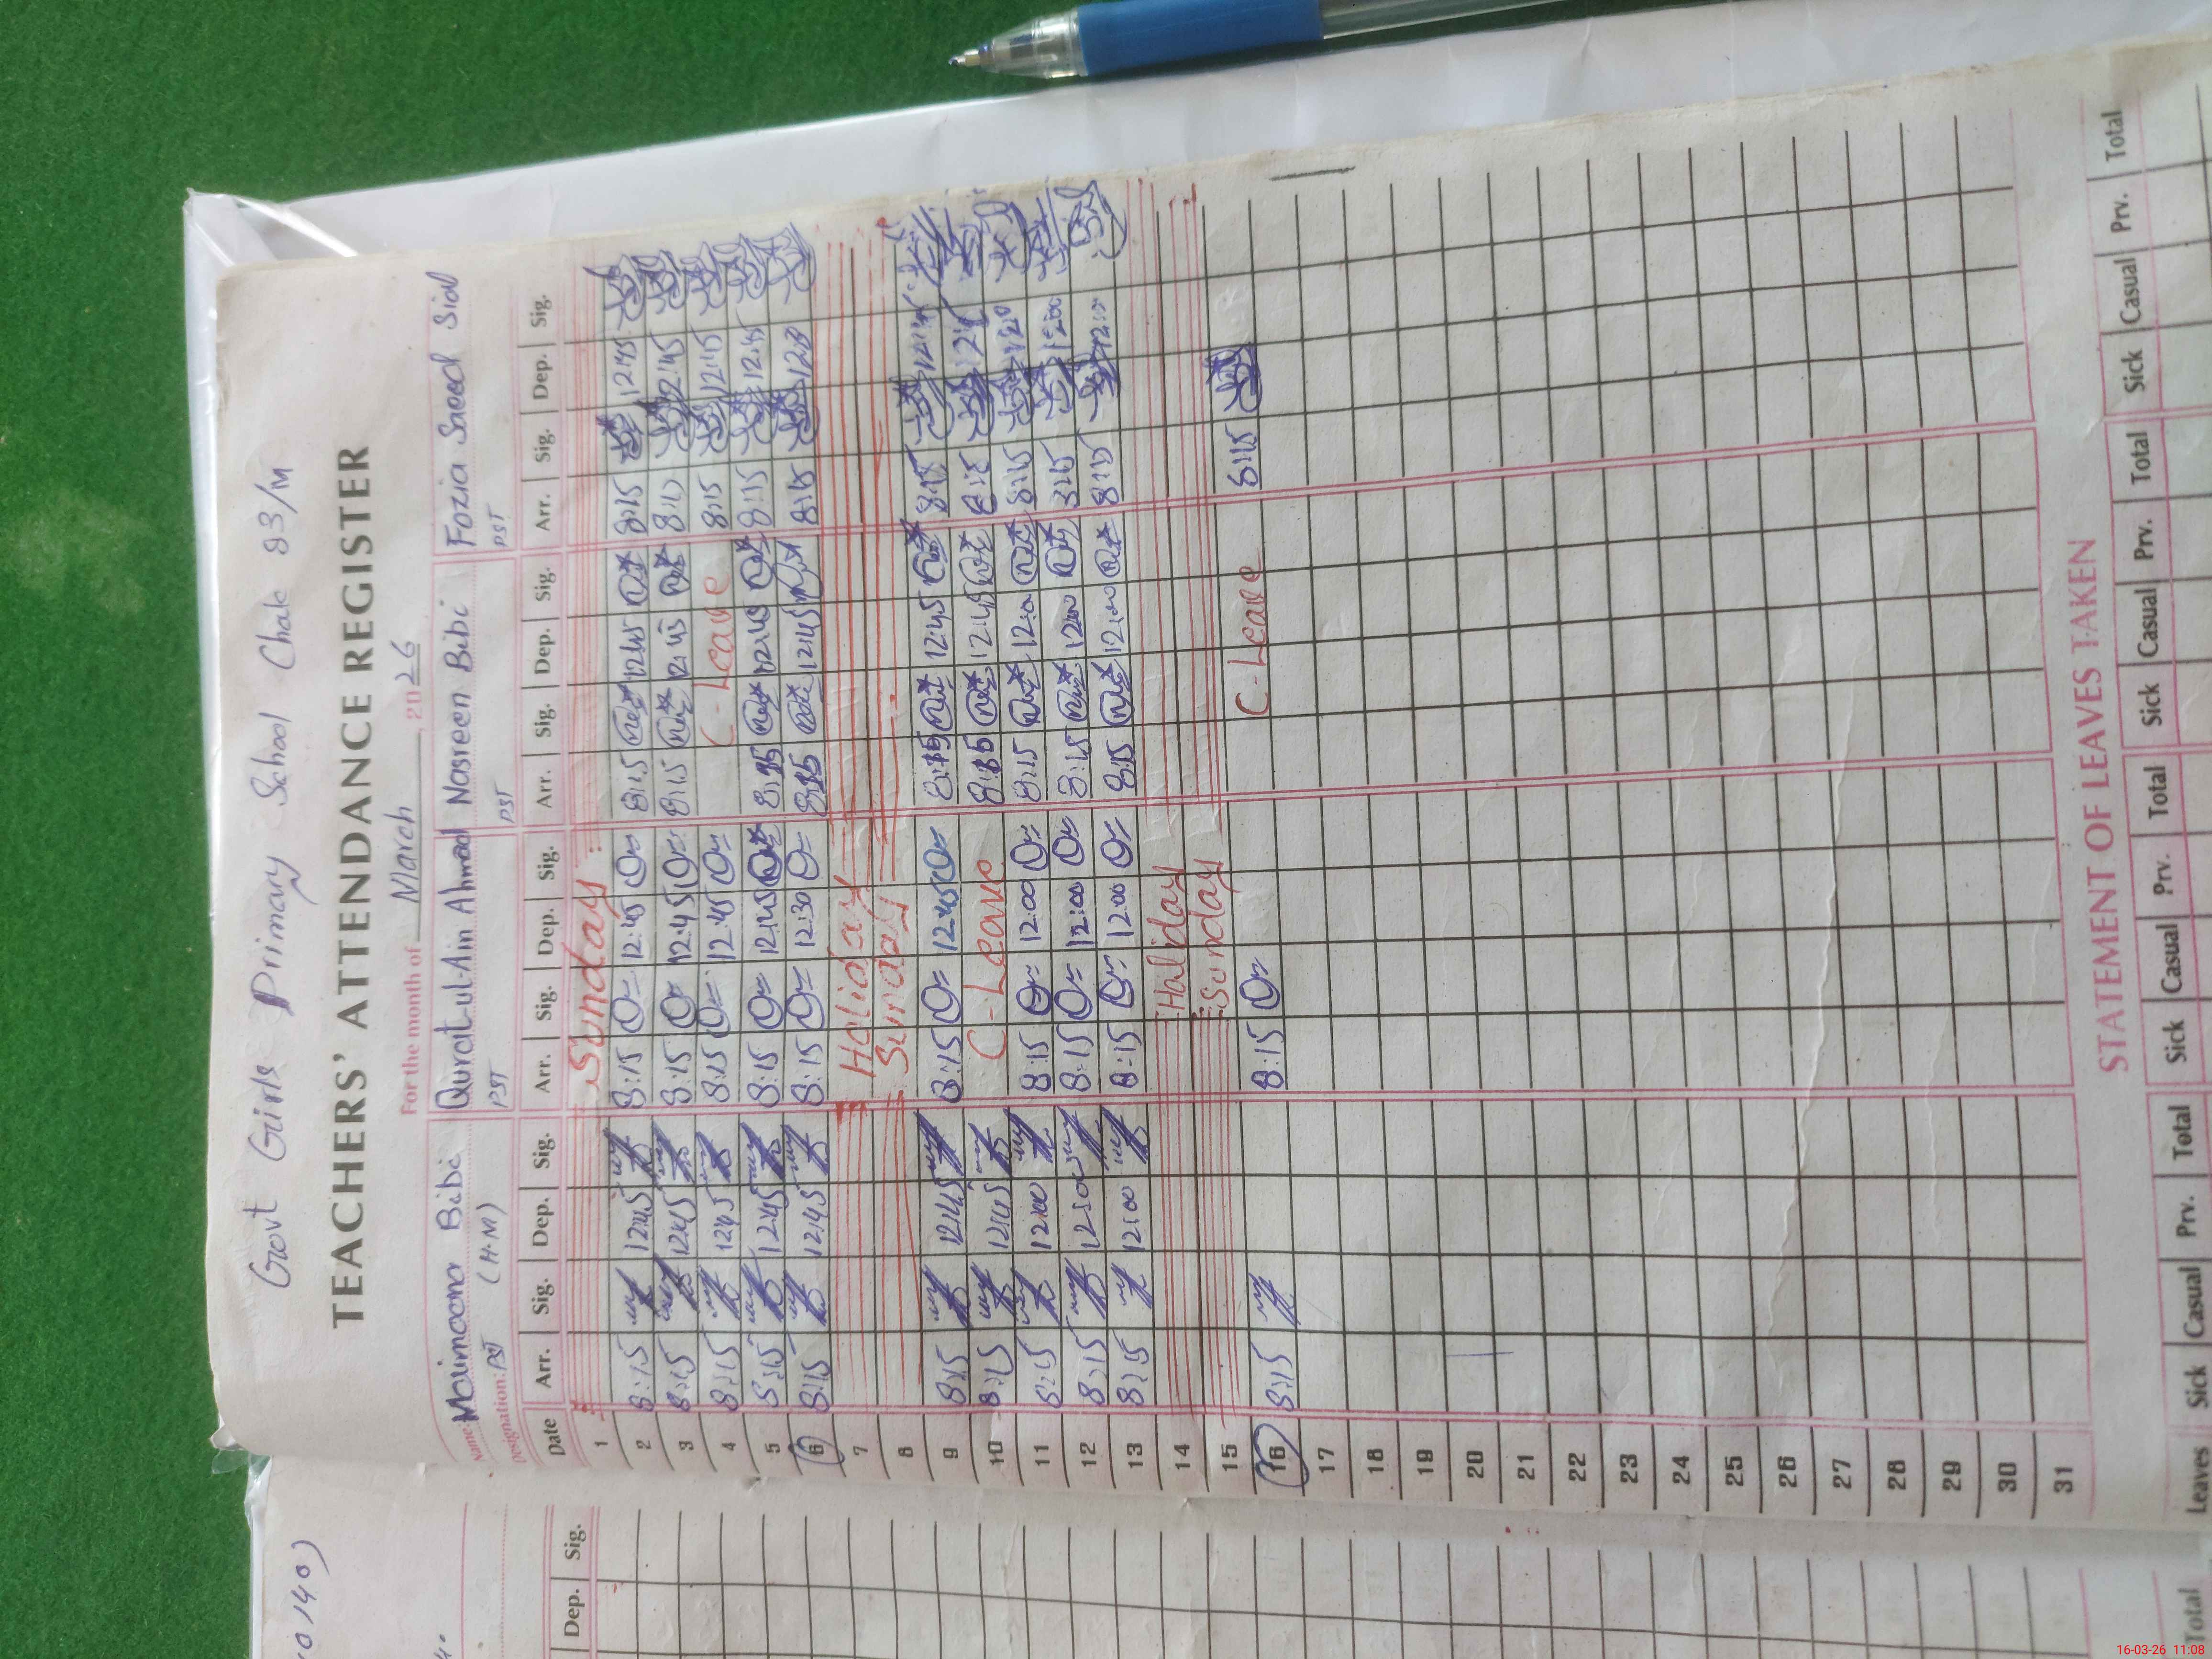 Govt Girls Primary School Chak 83/M
TEACHERS' ATTENDANCE REGISTER
For the month of March, 2026
Name: Maimoona Bibi Qurat-ul-Ain Ahmad Nasreen Bibi Fozia Saeed Sial
Designation: PST (H.M) PST PST PST
Date Arr. Sig. Dep. Sig. Arr. Sig. Dep. Sig. Arr. Sig. Dep. Sig. Arr. Sig. Dep. Sig.
1 Sunday
2 8:15 12:45 8:15 12:45 8:15 12:45 8:15 12:45
3 8:15 12:45 8:15 12:45 8:15 12:45 8:15 12:45
4 8:15 12:45 8:15 12:45 C-Leave 8:15 12:45
5 8:15 12:45 8:15 12:45 8:15 12:45 8:15 12:45
6 8:15 12:45 8:15 12:30 8:15 12:45 8:15
7 Holiday
8 Sunday
9 8:15 12:45 8:15 12:45 8:15 12:45 8:15
10 8:15 12:45 C-Leave 8:15 12:45 8:15
11 8:15 12:00 8:15 12:00 8:15 12:00 8:15
12 8:15 12:00 8:15 12:00 8:15 12:00 12:00
13 8:15 12:00 8:15 12:00 8:15 12:00 8:15
14 Holiday
15 Sunday
16 8:15 8:15 C-Leave 8:15
17
18
19
20
21
22
23
24
25
26
27
28
29
30
31
STATEMENT OF LEAVES TAKEN
Leaves Sick Casual Prv. Total Sick Casual Prv. Total Sick Casual Prv. Total Sick Casual Prv. Total
Dep. Sig.
Total
16-03-26 11:08